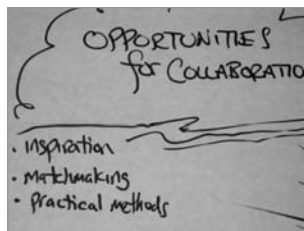 OPPORTUNITIES
for COLLABORATIO
· inspiration
· matchmaking
· Practical methods